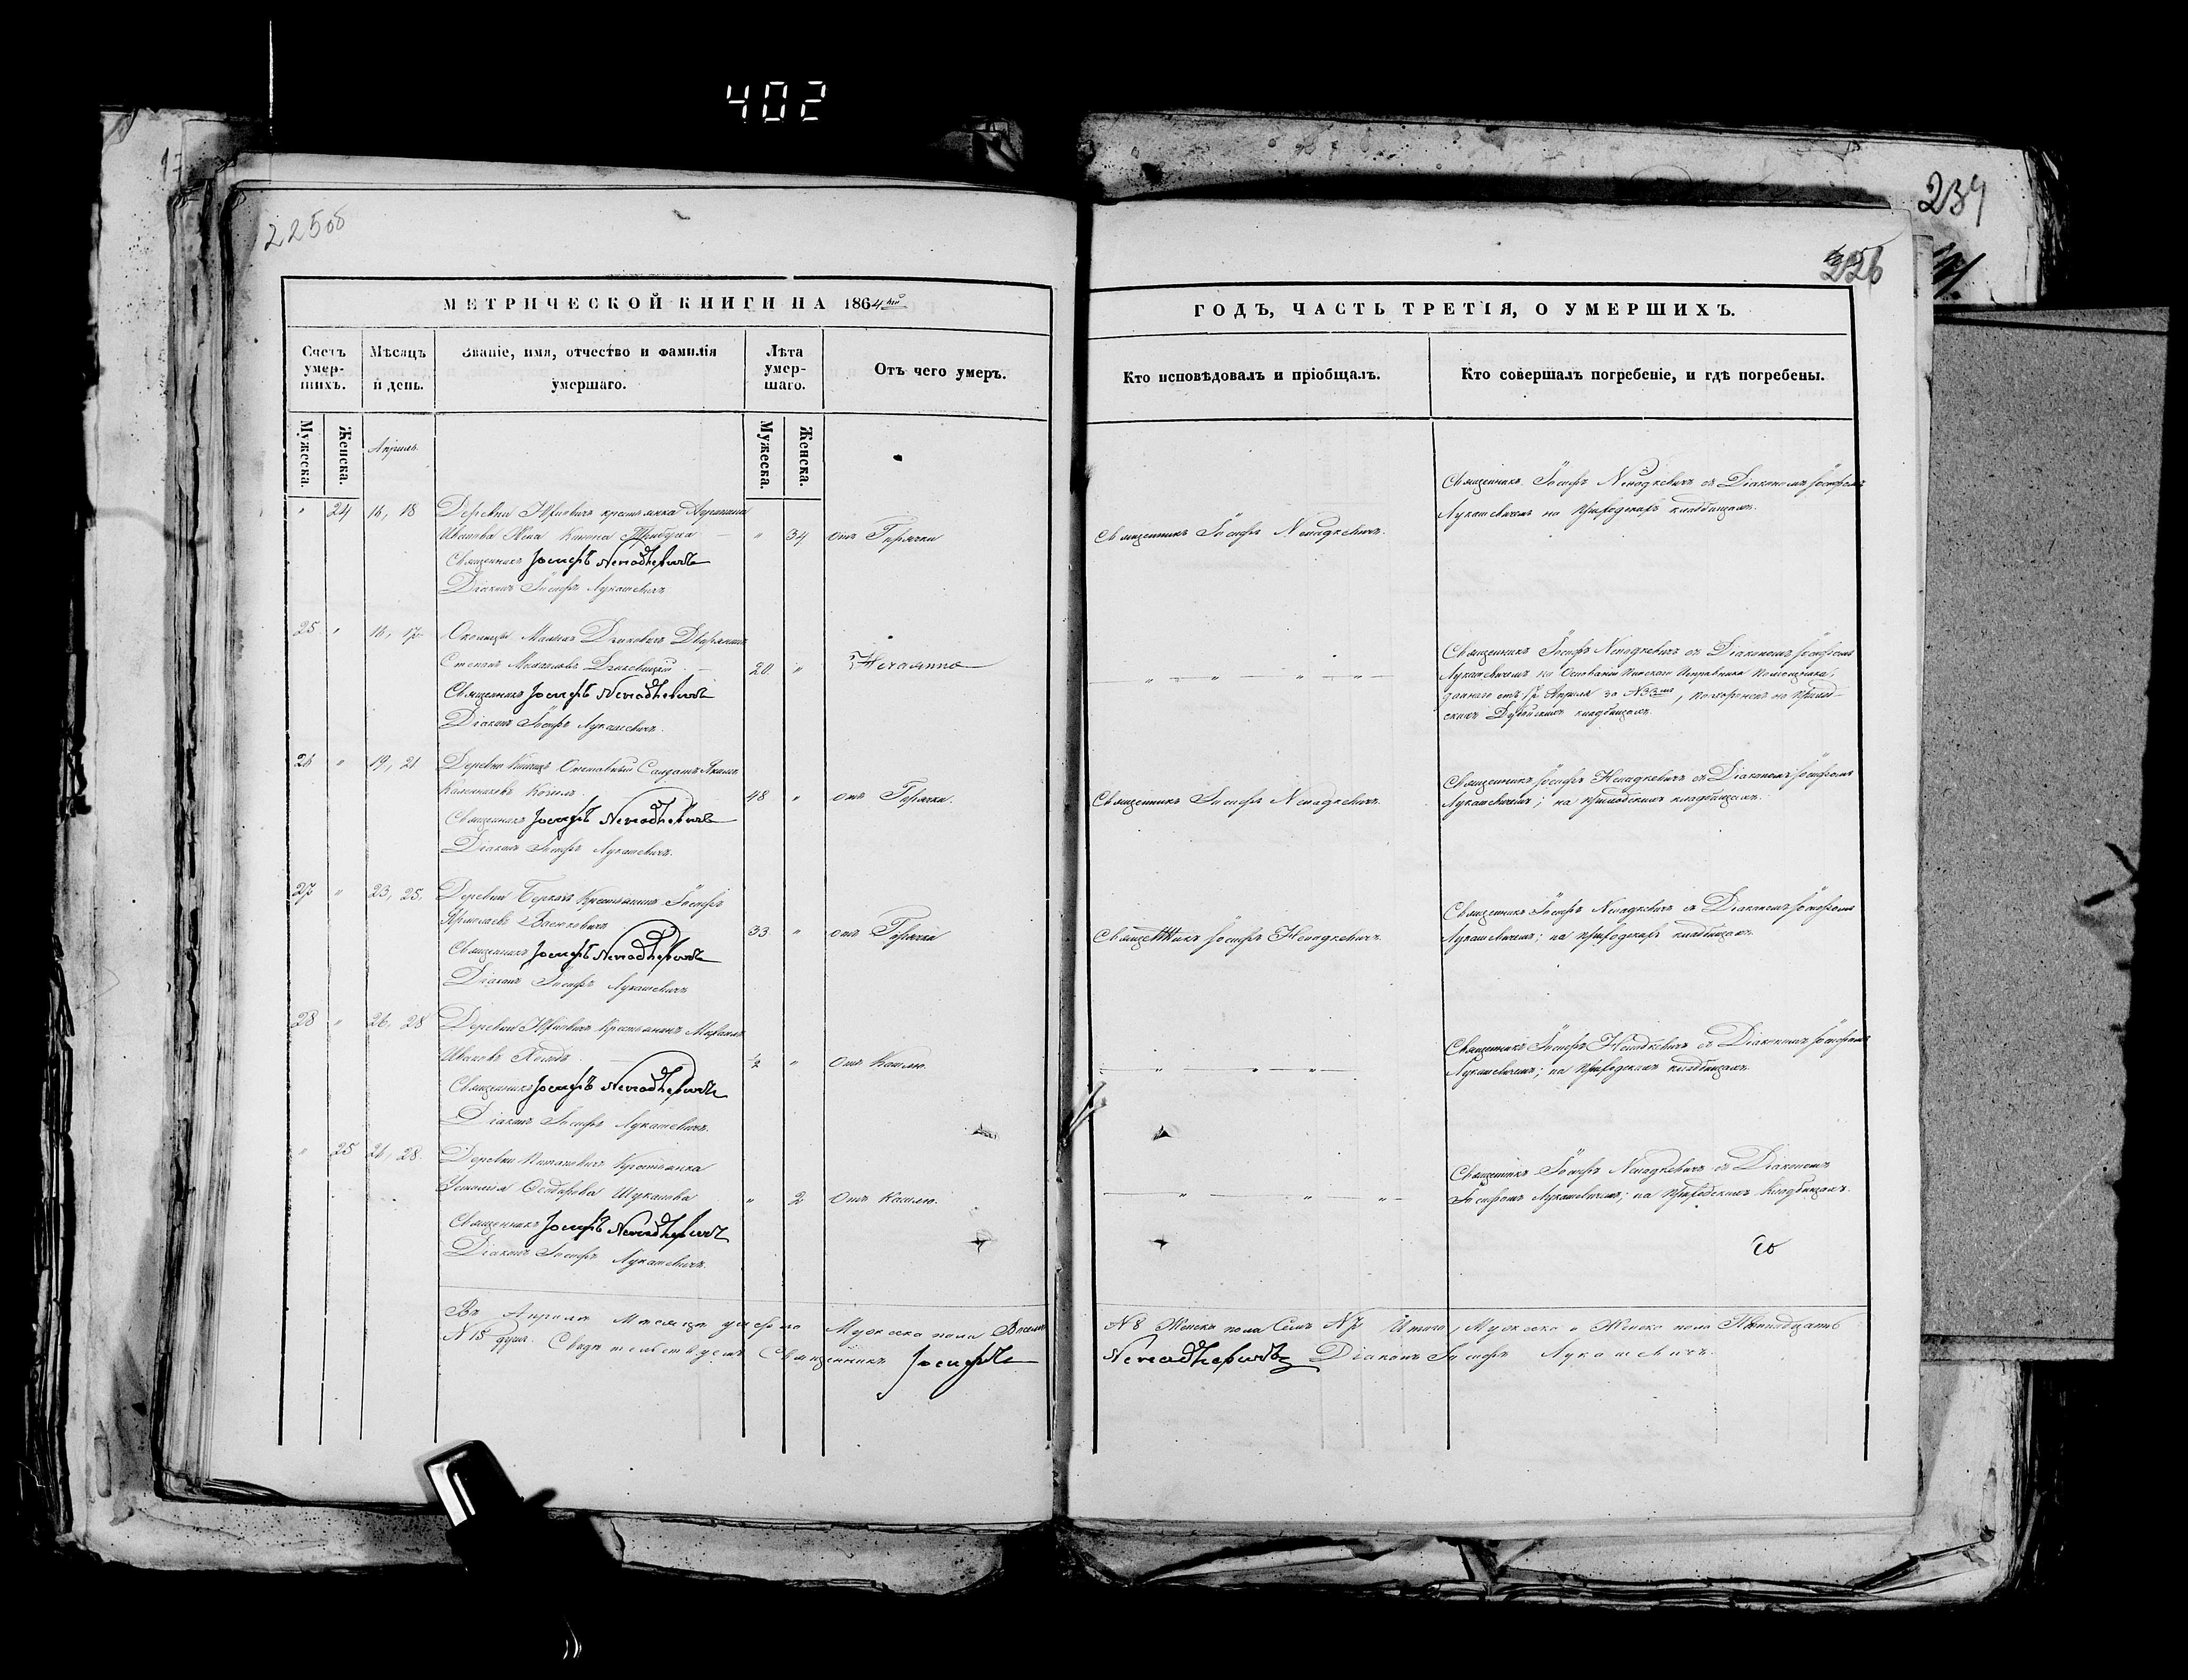 402
239
225об
226
МЕТРИЧЕСКОЙ КНИГИ НА 1864й
ГОДЪ, ЧАСТЬ ТРЕТІЯ, О УМЕРШИХЪ.
Счетъ умер-шихъ.
Мѣсяцъ и день.
Званіе, имя, отчество и фамилія умершаго.
Лѣта умер-шаго.
Отъ чего умеръ.
Кто исповѣдовалъ и пріобщалъ.
Кто совершалъ погребеніе, и гдѣ погребены.
Мужеска.
Женска.
Апрѣль.
Мужеска.
Женска.
" 24 16, 18 Деревни крестьянка
Иванова Жена " 34 отъ Горячки
Священникъ Іосифъ Ненадкевичъ
Діаконъ Іосифъ Лукашевичъ
Священникъ Іосифъ Ненадкевичъ.
Священникъ Іосифъ Ненадкевичъ съ Діакономъ Іосифомъ
Лукашевичемъ на Приходскихъ кладбищахъ.
25 " 16, 17 Околицы Дворянинъ
Степанъ 20 " Нечаянно
Священникъ Іосифъ Ненадкевичъ
Діаконъ Іосифъ Лукашевичъ.
Священникъ Іосифъ Ненадкевичъ съ Діакономъ Іосифомъ
Лукашевичемъ на Основаніи Пинскаго Исправника
даннаго отъ 17 Апрѣля за
кладбищахъ.
26 " 19, 21 Деревни Отставный Солдатъ
48 " отъ Горячки.
Священникъ Іосифъ Ненадкевичъ
Діаконъ Іосифъ Лукашевичъ.
Священникъ Іосифъ Ненадкевичъ.
Священникъ Іосифъ Ненадкевичъ съ Діакономъ Іосифомъ
Лукашевичемъ; на приходскихъ кладбищахъ.
27 " 23, 25, Деревни Крестьянинъ Іосифъ
33 " отъ Горячки
Священникъ Іосифъ Ненадкевичъ
Діаконъ Іосифъ Лукашевичъ
Священникъ Іосифъ Ненадкевичъ.
Священникъ Іосифъ Ненадкевичъ съ Діакономъ Іосифомъ
Лукашевичемъ; на приходскихъ кладбищахъ.
28 " 26, 28 Деревни Крестьянинъ Михаилъ
Ивановъ ½ " Отъ Кашлю.
Священникъ Іосифъ Ненадкевичъ
Діаконъ Іосифъ Лукашевичъ.
Священникъ Іосифъ Ненадкевичъ съ Діакономъ Іосифомъ
Лукашевичемъ; на приходскихъ кладбищахъ.
" 25 26, 28. Деревни Крестьянка
" 2 Отъ Кашлю.
Священникъ Іосифъ Ненадкевичъ
Діаконъ Іосифъ Лукашевичъ.
Священникъ Іосифъ Ненадкевичъ съ Діакономъ
Іосифомъ Лукашевичемъ; на приходскихъ кладбищахъ.
Въ Апрѣлѣ Мѣсяцѣ умерло Мужеска пола Восемь N 8 Женска пола Семь N 7 Итого, Мужеска и Женска пола Пятнадцать
N 15 душъ. Свидѣтельствуемъ Священникъ Іосифъ Ненадкевичъ Діаконъ Іосифъ Лукашевичъ.